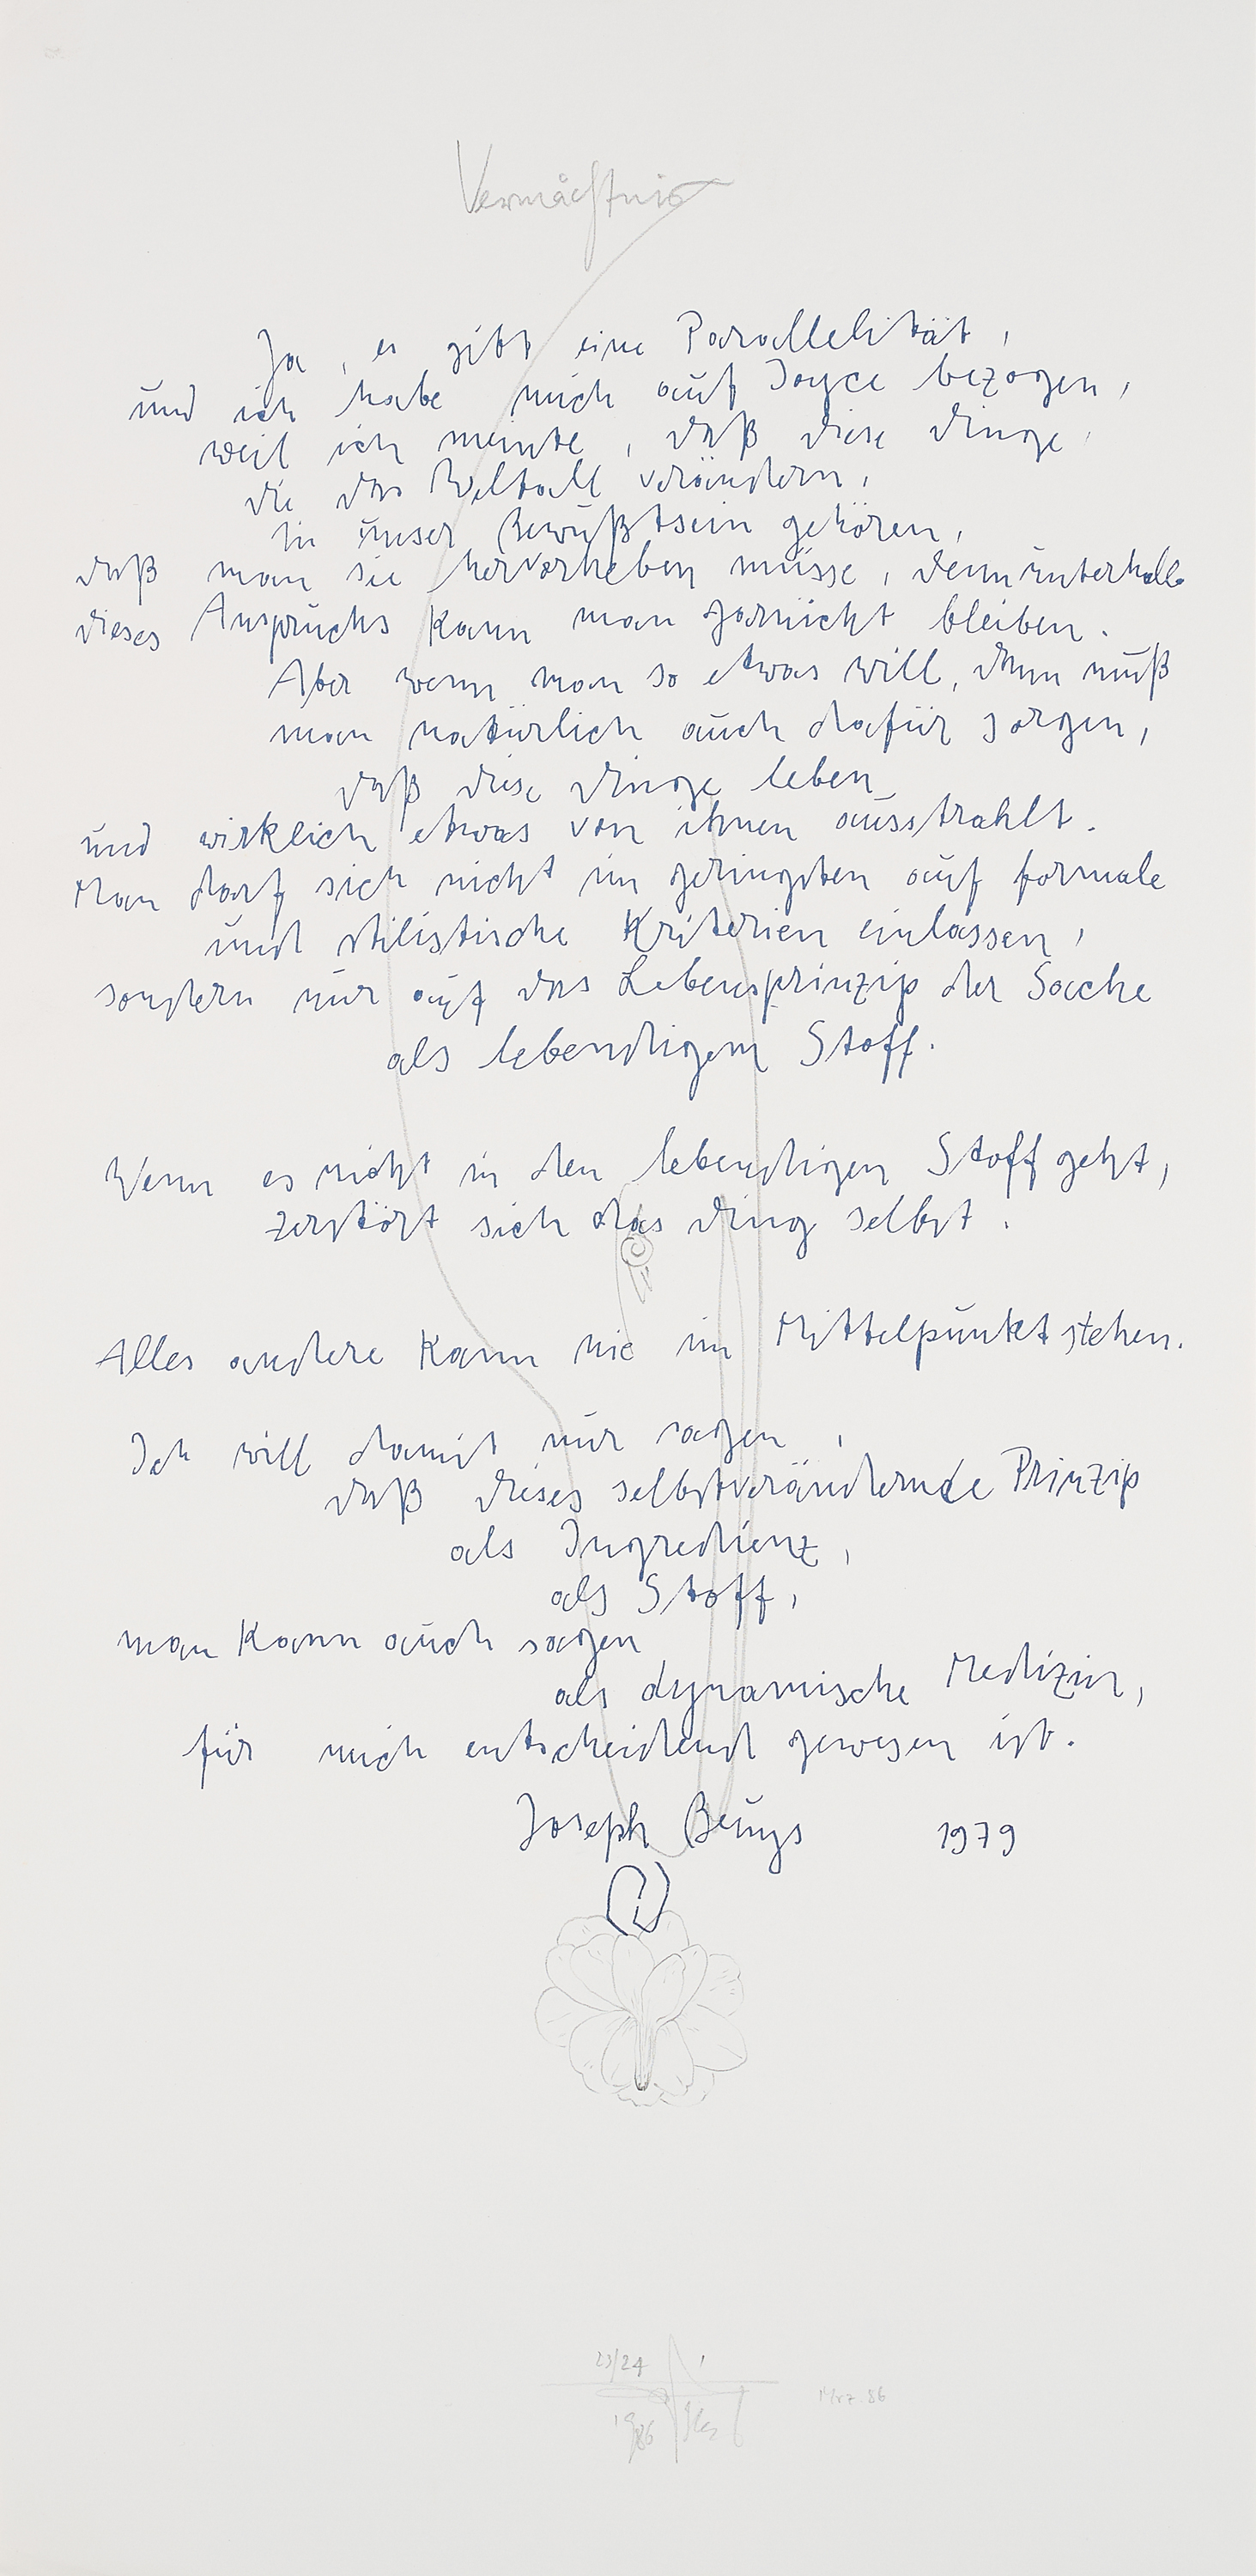 Vermächtnis
Ja, es gibt eine Parallelität,
und ich habe mich auf Joyce bezogen,
weil ich meinte, daß diese Dinge,
die das Weltall verändern,
in unser Bewußtsein gehören,
daß man sie hervorheben müsse, denn unterhalb
dieses Anspruchs kann man garnicht bleiben.
Aber wenn man so etwas will, dann muß
man natürlich auch dafür sorgen,
daß diese Dinge leben
und wirklich etwas von ihnen ausstrahlt.
Man darf sich nicht im geringsten auf formale
und stilistische Kriterien einlassen,
sondern nur auf das Lebensprinzip der Sache
als lebendigem Stoff.
Wenn es nicht in den lebendigen Stoff geht,
zerstört sich das Ding selbst.
©
Alles andere kann nie im Mittelpunkt stehen.
Ich will damit nur sagen,
daß dieses selbstverändernde Prinzip
als Ingredienz,
als Stoff,
man kann auch sagen
als dynamische Medizin,
für mich entscheidend gewesen ist.
Joseph Beuys 1979
23/24
1986 Mrz. 86